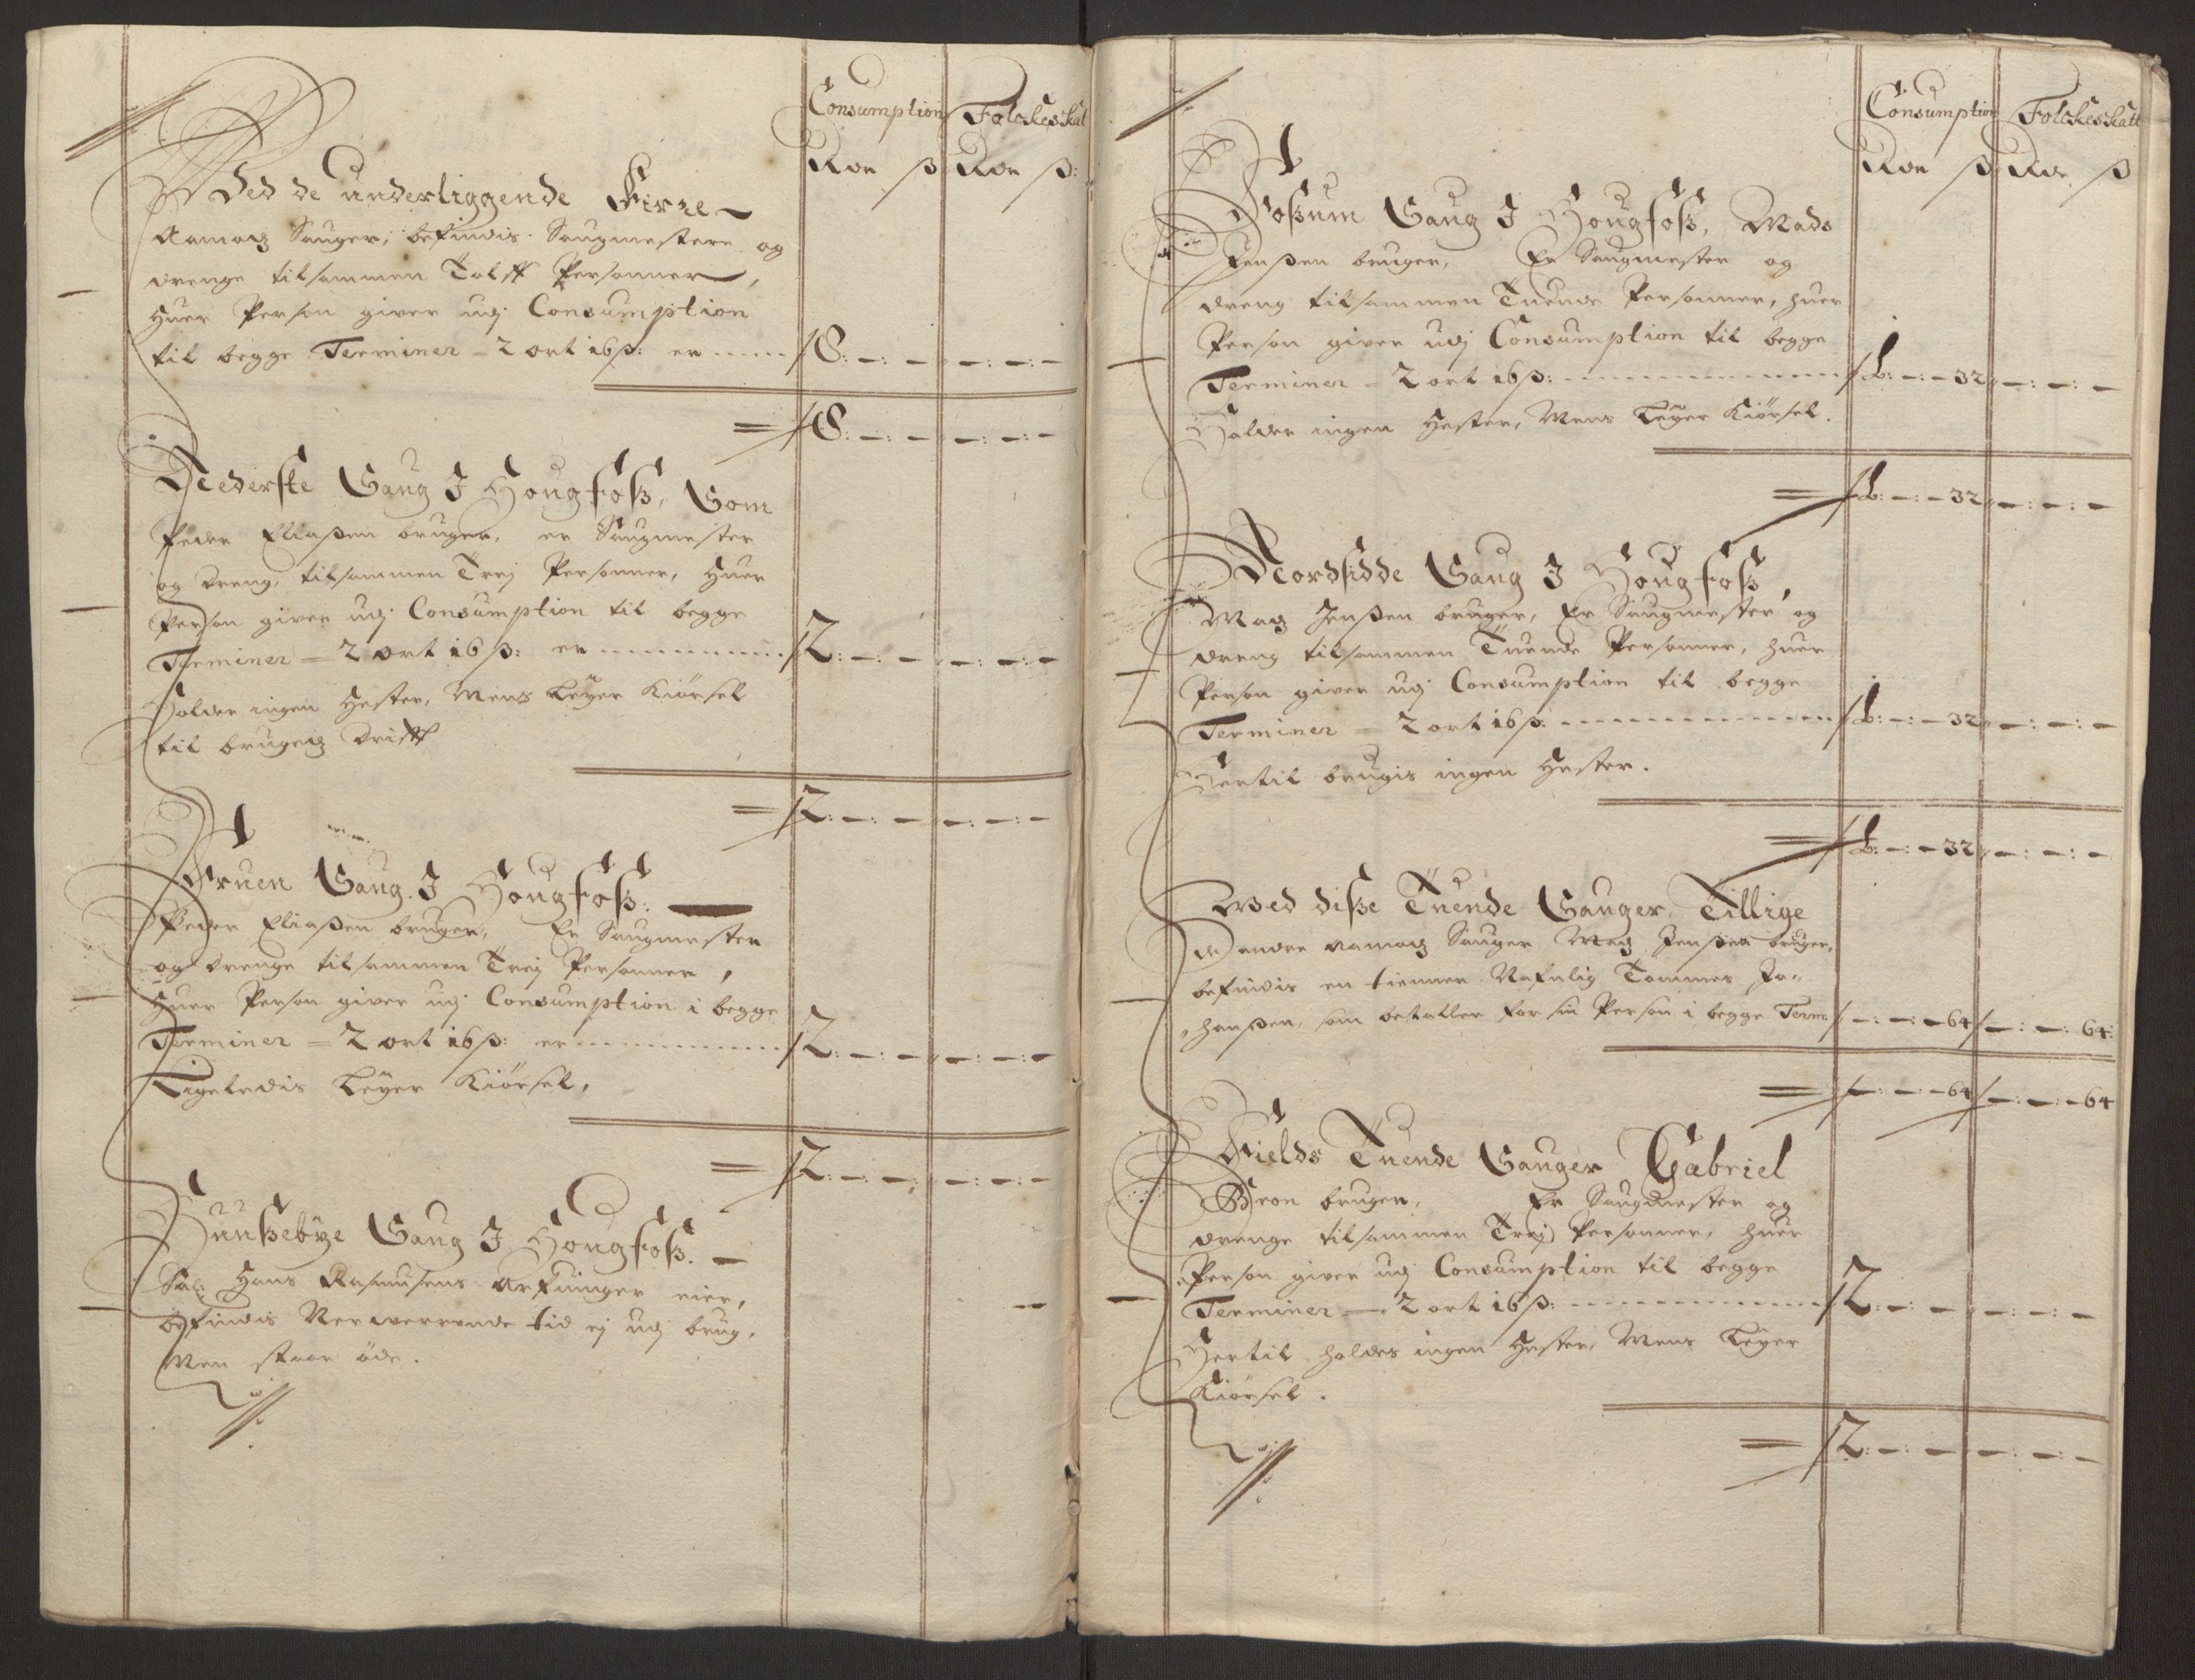 Consumption Folckeskat
Rdr ß Rdr ß:
Ved de underliggende Firre
Aamodz Sauger, befindis Saugmestere og
drenge tilsammen Tolff Personner,
Huer Person giver udj Consumption
til begge Terminer = 2 ort 16 ß: er ...... 8: —: — —: —: —
= 8: —: — —: —: —
Nederste Saug I Hougfoß, Som
Peder Eliaßen bruger, er Saugmester
og dreng, tilsammen Trej Personner, Huer
Person giver udj Consumption til begge
Terminer = 2 ort 16 ß: er ........... 2: —: — —: —: —
Holder ingen Hester, Mens Leyer Kiørsel
til brugetz drifft
= 2: —: — —: —: —
Fruen Saug I Hougfoß:
Peder Eliaßen bruger, Er Saugmester
og drenge tilsammen Trej Personner,
Huer Person giver udj Consumption i begge
Terminer = 2 ort 16 ß: er ............ 2: —: — —: —: —
Ligeledis Leyer Kiørsel,
= 2: —: — —: —: —
Hunßebye Saug I Hougfoß.
Sal: Hans Rasmusens Arfuinger eier,
befindis Nerwerende tid ej udj brug,
Men staar øde.
Consumption Folckeskatt
Rdr ß Rdr ß
Foßum Saug I Hougfoß, Mads
Jenßen bruger, Er Saugmester og
dreng tilsammen Tuende Personner, huer
Person giver udj Consumption til begge
Terminer = 2 ort 16 ß: ................ 1: —: — 32 —: —: —
Holder ingen Hester, Mens Leyer Kiørsel.
= 1: —: — 32 —: —: —
Nordsidde Saug I Hougfoß,
Madz Jenßen bruger, Er Saugmester og
dreng tilsammen Tuende Personner, huer
Person giver udj Consumption til begge
Terminer = 2 ort 16 ß: ................ 1: —: — 32 —: —: —
Hertil brugis ingen Hester.
= 1: —: — 32 —: —: —
Wed diße Tuende Sauger, Tillige
de andre Aamodz Sauger Madz Jenßen bruger,
befindis en tienner Nafnlig Tommes Jo-
hanßen, som betaller for sin Person i begge Term: —: — 64 —: —: 64:
= —: — 64 —: —: — 64
Fields Tuende Sauger Gabriel
bruger, Er Saugmester og
drenge tilsammen Trej Personner, huer
Person giver udj Consumption til begge
Terminer = 2 ort 16 ß: ................ 2: —: — —: —: —
Hertil holdes ingen Hester, Mens Leyer
Kiørsel.
= 2: —: — —: —: —